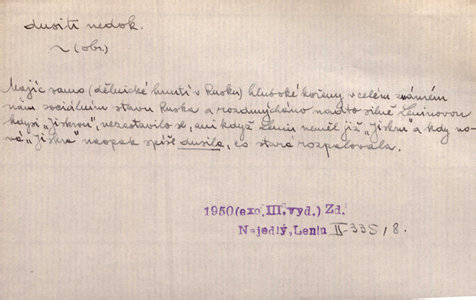 dusiti nedok.
~ (obr.)
Majíc samo (dělnické hnutí v Rusku) hluboké kořeny v celém známém
nám sociálním stavu Ruska a rozdmýcháno nadto silně Leninovou
kdysi „Jiskrou“, nezastavilo se, ani když Lenin neměl již „Jiskru“ a kdy no-
vá „Jiskra“ naopak spíše dusila, co stará rozpalovala.
1950(exc.III.vyd.) Zd.
Nejedlý, Lenin II-335/8.